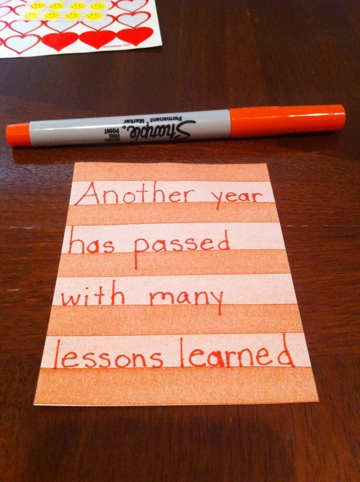 Sharpie
Permanent Marker
FINE
POINT
Another year
has passed
with many
lessons learned